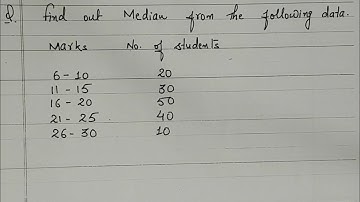 Q. Find out Median from the following data.
Marks No. of students
6 - 10 20
11 - 15 30
16 - 20 50
21 - 25 40
26 - 30 10